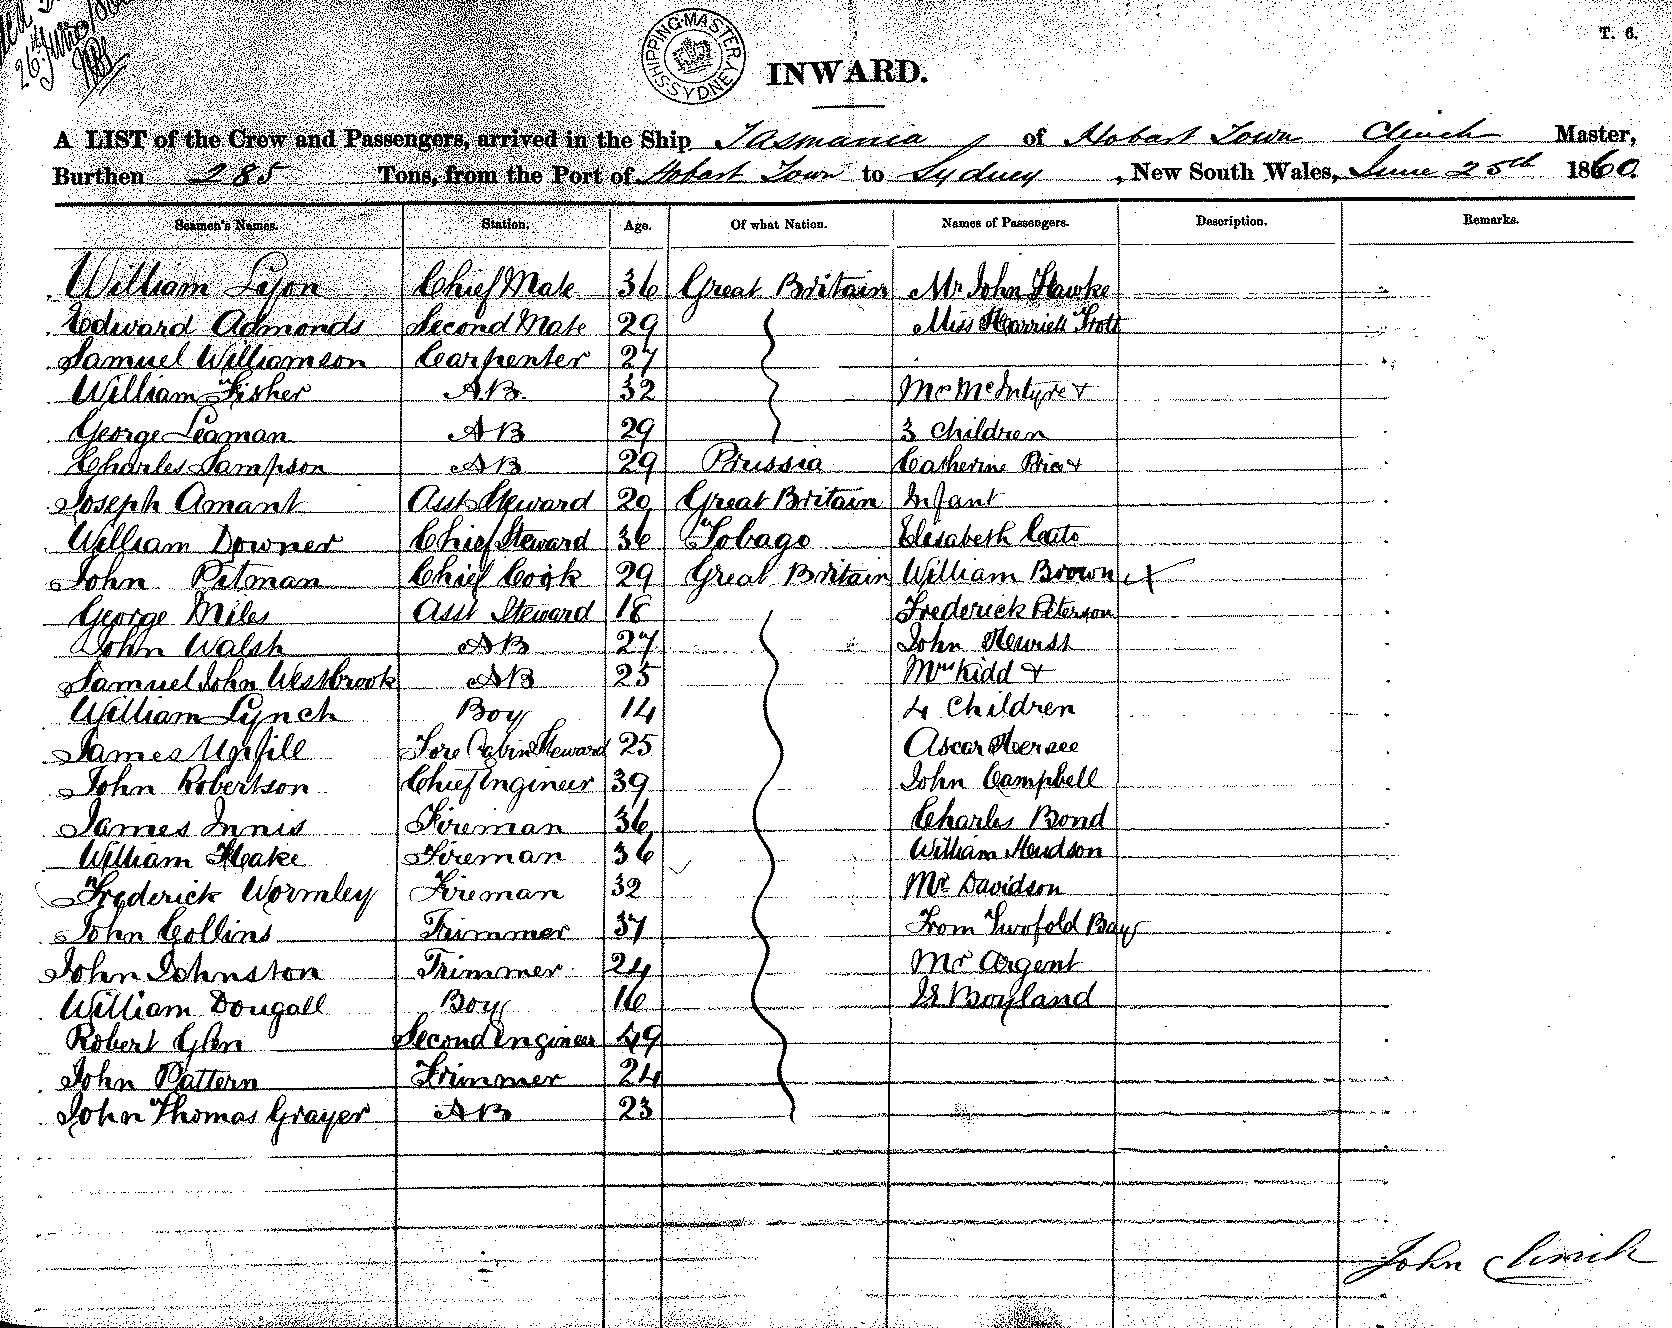 26th June
SHIPPING MASTER SYDNEY
T. 6.
INWARD.
A LIST of the Crew and Passengers, arrived in the Ship Tasmania, of Hobart Town Clinch Master,
Burthen 285 Tons, from the Port of Hobart Town to Sydney, New South Wales, June 25th 1860
Seamen's Names. Station. Age. Of what Nation. Names of Passengers. Description. Remarks.
William Lyon Chief Mate 36 Great Britain Mr John Hawke
Edward Admonds Second Mate 29 Miss Harriett Trott
Samuel Williamson Carpenter 27
William Fisher AB. 32 Mrs McIntyre +
George Leaman AB 29 3 Children
Charles Sampson AB 29 Prussia Catherine Price +
Joseph Amant Asst Steward 20 Great Britain Infant
William Downer Chief Steward 36 Tobago Elisabeth Cato
John Pitman Chief Cook 29 Great Britain William Brown X
George Miles Asst Steward 18 Frederick Peterson
John Walsh AB 27 John Hewist
Samuel John Westbrook AB 25 Mrs Kidd +
William Lynch Boy 14 4 Children
James Upfill Fore Cabin Steward 25 Ascar Hersee
John Robertson Chief Engineer 39 John Campbell
James Innis Fireman 36 Charles Bond
William Heake Fireman 36 William Hudson
Frederick Wormley Fireman 32 Mr Davidson
John Collins Trimmer 37 From Twofold Bay
John Johnston Trimmer 24 Mr Argent
William Dougall Boy 16 Boyland
Robert Glen Second Engineer 49
John Pattern Trimmer 24
John Thomas Grayer AB 23
John Clinch